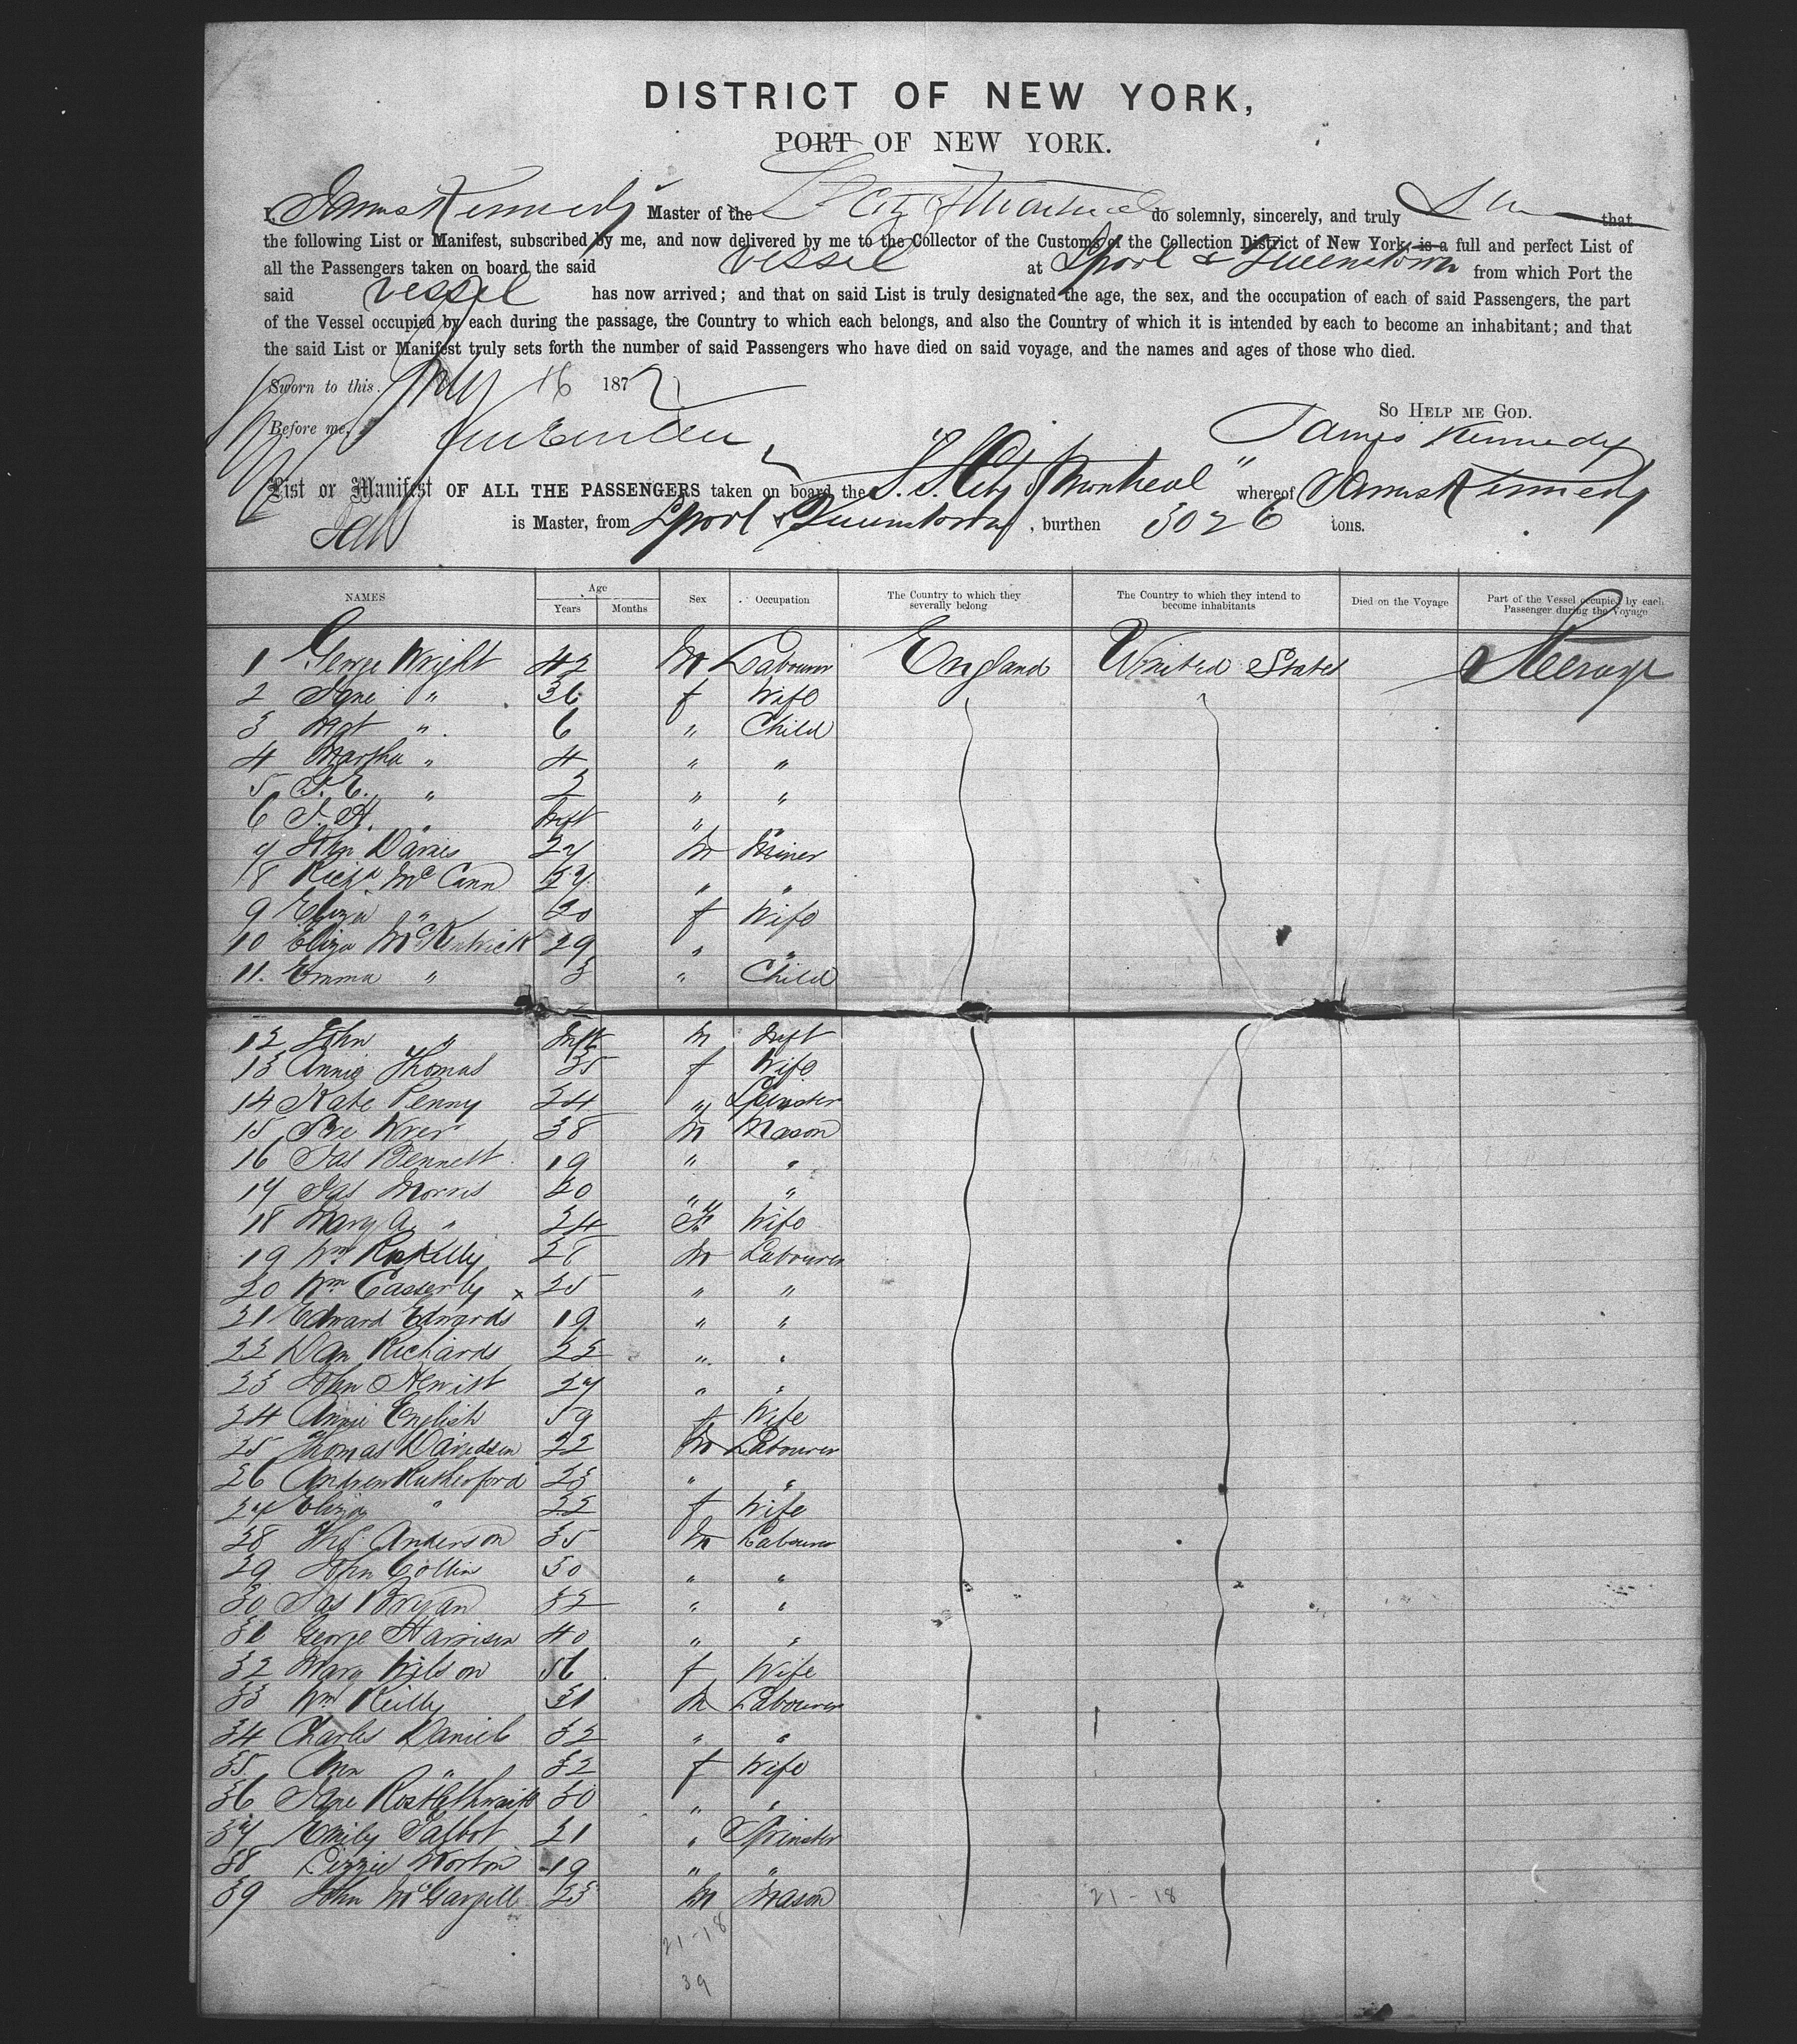 DISTRICT OF NEW YORK,
PORT OF NEW YORK.
I, James Kennedy Master of the S.S. City of Montreal do solemnly, sincerely, and truly that
the following List or Manifest, subscribed by me, and now delivered by me to the Collector of the Customs of the Collection District of New York, is a full and perfect List of
all the Passengers taken on board the said vessel at Lpool & Queenstown from which Port the
said vessel has now arrived; and that on said List is truly designated the age, the sex, and the occupation of each of said Passengers, the part
of the Vessel occupied by each during the passage, the Country to which each belongs, and also the Country of which it is intended by each to become an inhabitant; and that
the said List or Manifest truly sets forth the number of said Passengers who have died on said voyage, and the names and ages of those who died.
Sworn to this July 16 1872
So Help me God.
Before me, James Kennedy
List or Manifest OF ALL THE PASSENGERS taken on board the "S.S. City of Montreal" whereof James Kennedy
is Master, from Lpool & Queenstown, burthen 3026 tons.
NAMES Age Years Months Sex Occupation The Country to which they severally belong The Country to which they intend to become inhabitants Died on the Voyage Part of the Vessel occupied by each Passenger during the Voyage
1 George Wright 42 M Labourer England United States Steerage
2 Jane " 36 f Wife
3 Mgt " 6 " Child
4 Martha " 4 " "
5 S.E. " 2 " "
6 J.H. " Inft "
7 John Davies 27 M Miner
8 Richd McCann 27 " "
9 Eliza " 20 f Wife
10 Eliza McKentrick 29 " "
11. Emma " 3 " Child
12 John " Inft M Inft
13 Annie Thomas 35 f Wife
14 Kate Penny 24 " Spinster
15 38 M Mason
16 Jas Bennett 19 " "
17 Jas Morris 20 " "
18 Mary A. " 24 F Wife
19 Wm 28 M Labourer
20 Wm Casserly x 25 " "
21 Edward Edwards 19 " "
22 Dan Richards 22 " "
23 John Hewitt 27 " "
24 Annie English 59 f Wife
25 Thomas Davidson 22 M Labourer
26 Andrew Rutherford 23 " "
27 Eliza " 22 f Wife
28 Thos Anderson 35 M Labourer
29 John Collin 50 " "
30 Jas Bryan 32 " "
31 George Harrison 40 " "
32 Mary Wilson 56 f Wife
33 Wm Reilly 31 M Labourer
34 Charles Daniels 32 " "
35 Ann " 32 f Wife
36 Jane Postlethwaite 30 " "
37 Emily Talbot 21 " Spinster
38 Lizzie Worton 19 " "
39 John McGargill 23 M Mason 21-18
21-18
39